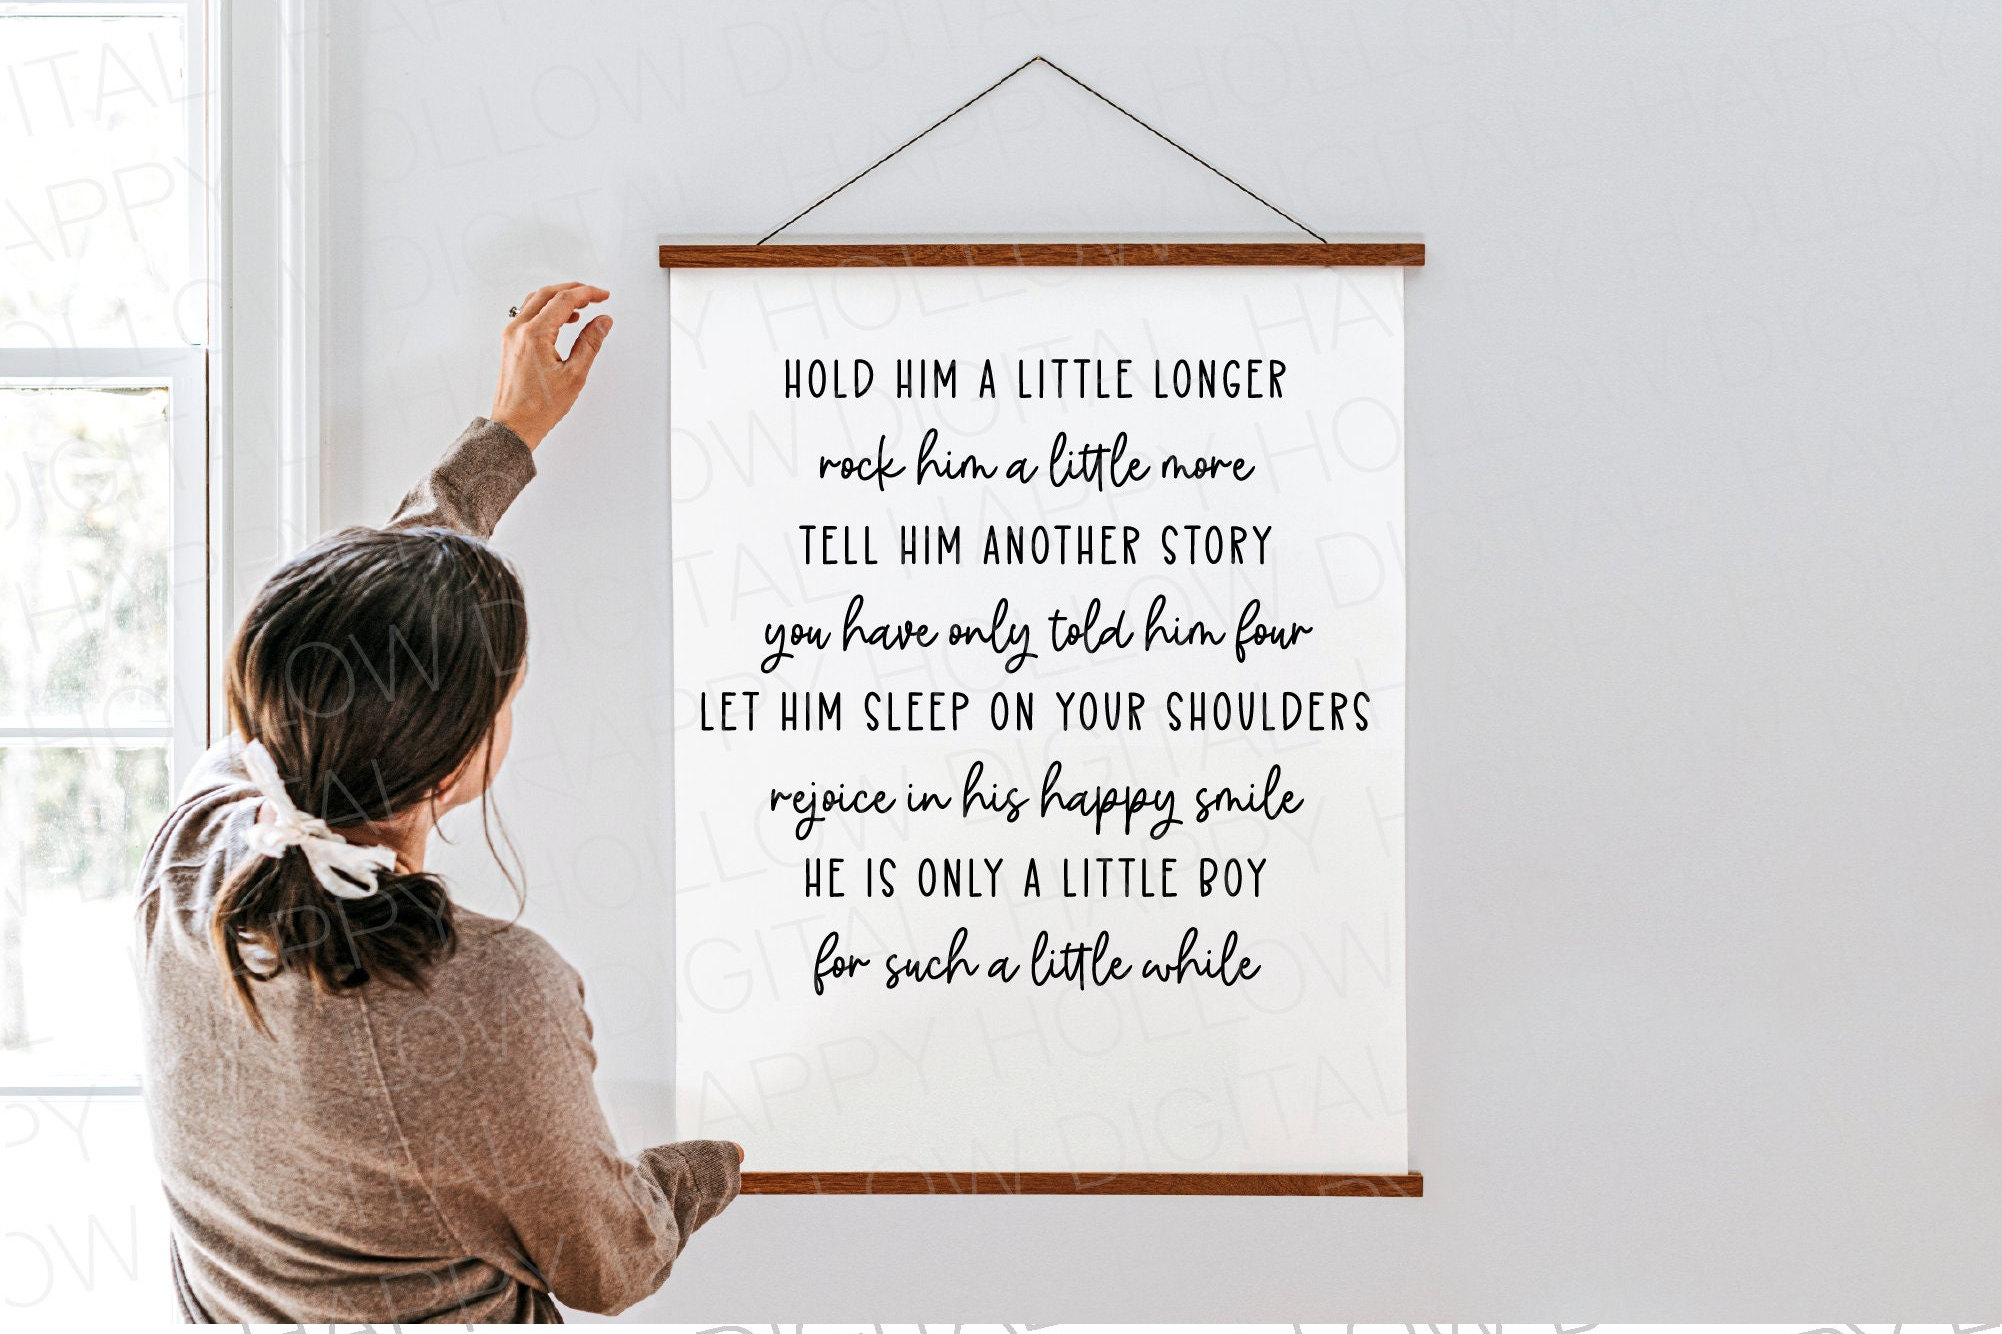 HOLD HIM A LITTLE LONGER
rock him a little more
TELL HIM ANOTHER STORY
you have only told him four
LET HIM SLEEP ON YOUR SHOULDERS
rejoice in his happy smile
HE IS ONLY A LITTLE BOY
for such a little while
HAPPY HOLLOW DIGITAL